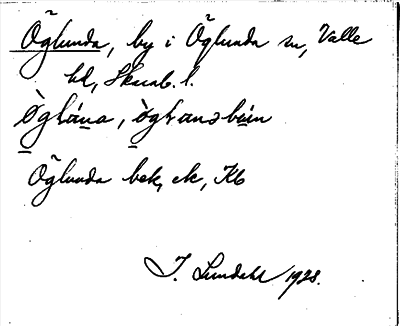 Öglunda, by i Öglunda sn, Valle
hd, Skarab. l.
ò̱glúna, ò̱glunsbún
Öglunda bek, ek, Kb
I. Lundahl 1928.